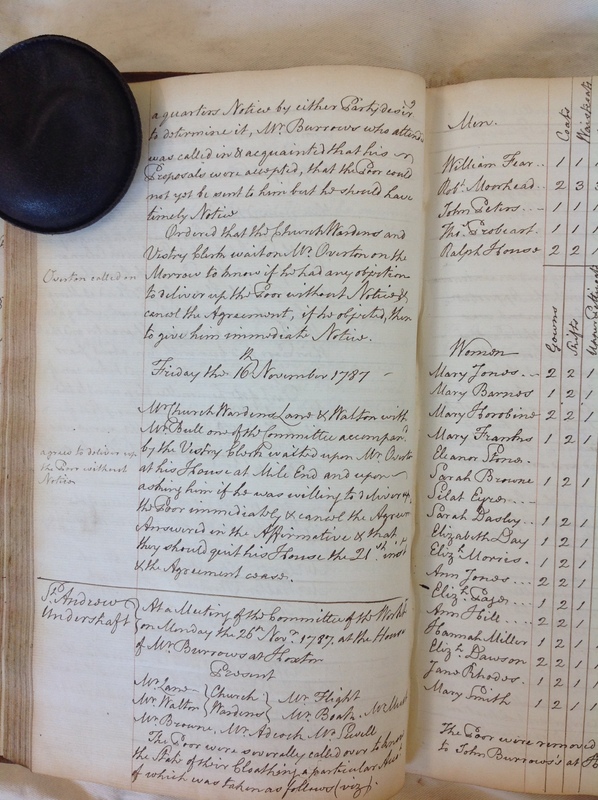 a quarters Notice by either Party desirg
to determine it, Mr. Burrows who attend
was called in & acquainted that his
Proposals were accepted, that the Poor could
not yet be sent to him but he should have
timely Notice
Ordered that the Church Wardens and
Vestry Clerk wait on Mr. Overton on the
Morrow to know if he had any objection
to deliver up the Poor without Notice &
cancel the Agreement, if he objected, then
to give him immediate Notice.
Overton called in
Friday the 16th November 1787
Mr. Church Wardens Lane & Walton with
Mr. Bull one of the Committee accompand
by the Vestry Clerk waited upon Mr. Overto
at his House at Mile End and upon
asking him if he was willing to deliver up
the Poor immediately & cancel the Agreem
Answered in the Affirmative & that
they should quit his House the 21st inst
& the Agreement cease.
agrees to deliver up
the Poor without
Notice
St. Andrew
Undershaft
At a Meeting of the Committee of the
on Monday the 26 Novr. 1787. at the House
of Mr. Burrows at Hoxton
Present
Mr. Lane Church Mr. Flight
Mr. Walton Wardens Mr. Booth
Mr. Browne, Mr. Adcock Mr. Sewell
The Poor were severally called over to know
the State of their Cloathing, a particular
of which was taken as follows (viz)
Men. Coats
William Fear 1 1 1
Robt. Moorhead 2 3 3
John Peters 1 1 1
Thos. Probeart 1 1 1
Ralph House 2 2 1
Women Gowns Shifts Upper Petticoats
Mary Jones 2 2 1
Mary Barnes 1 2 1
Mary Horobine 2 2 1
Mary Franklns 1 2 1
Eleanor Stone
Sarah Browne 1 2 1
Silat Eyer
Sarah Dasley 1 2 1
Elizabeth Day 1 2 1
Elizth. Morris 1 2 1
Ann Jones 2 2 1
Elizth. 1 2 1
Ann Hill 2 2 1
Hannah Miller 1 2 1
Elizth. Dawson 2 2 1
Jane Rhodes 1 2 1
Mary Smith 1 2 1
The Poor were removed
to John Burrows's at